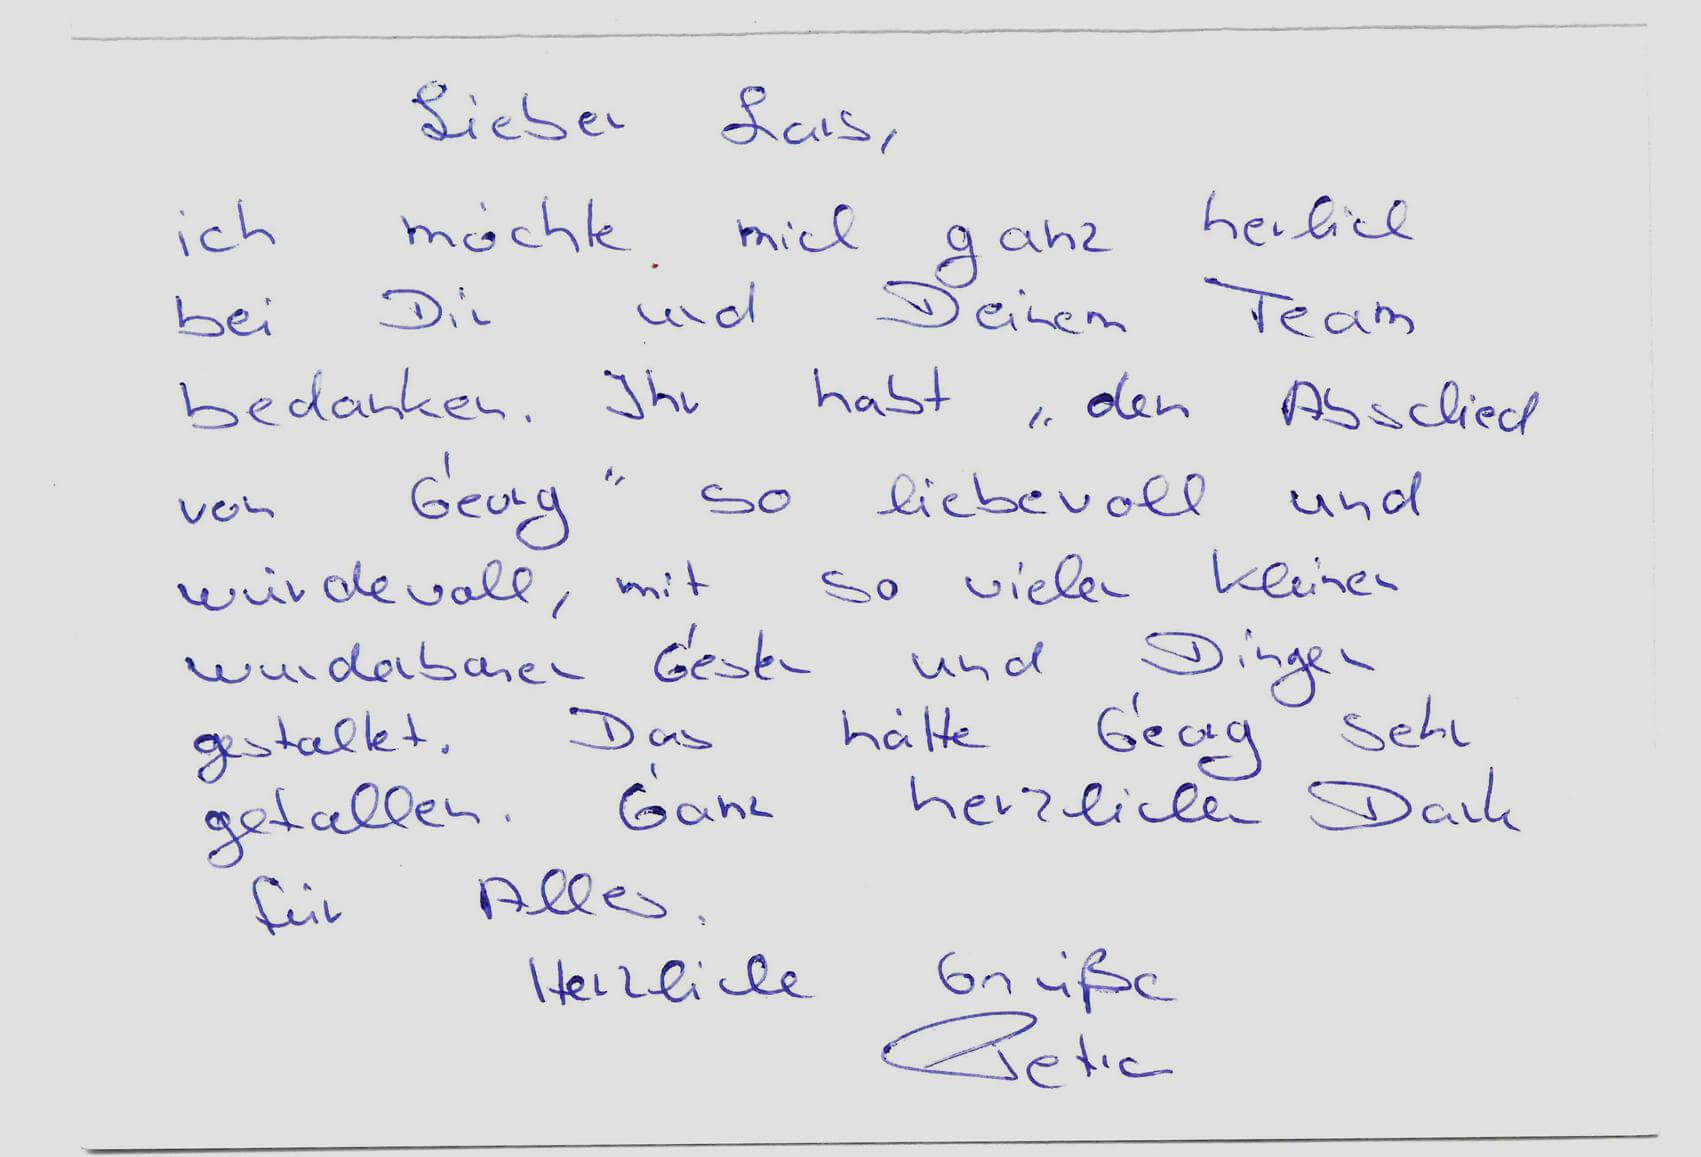 Lieber Lars,
ich möchte mich ganz herlich
bei Dir und Deinem Team
bedanken. Ihr habt „den Abschied
von Georg" so liebevoll und
würdevoll, mit so vielen kleinen
wunderbaren Gesten und Dingen
gestaltet. Das hätte Georg sehr
gefallen. Ganz herzlichen Dank
für Alles.
Herzliche Grüße
Petra